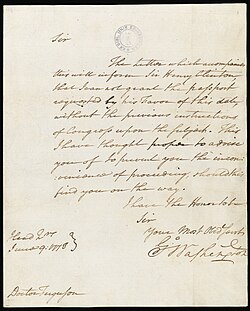 Sir
The letter which accompanies
this will inform Sir Henry Clinton
that I can not grant the passport
requested by his Favor of this date,
without the previous instructions
of Congress upon the subject. This
I have thought proper to advise
you of to prevent you the incon-
venience of proceeding, should this
find you on the way.
I have the Honor to be
Sir
Your Most Obed Servt
Go Washington
Head Qrs
June 9. 1778
Doctor Ferguson